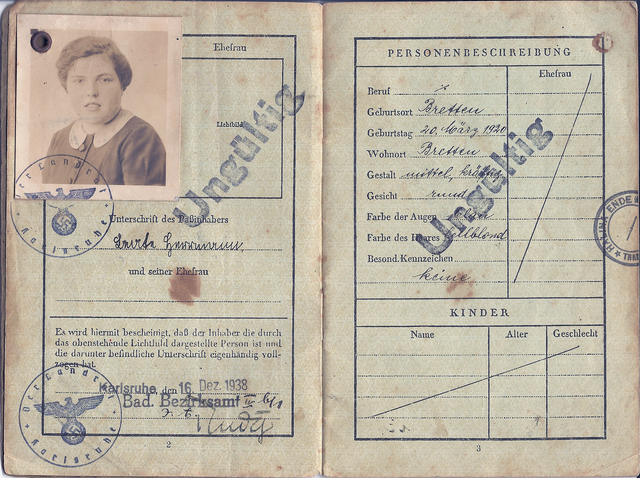 Ehefrau
Lichtbild
Ungültig
Der Landrat
Karlsruhe
Unterschrift des Paßinhabers
Herrmann
und seiner Ehefrau
Es wird hiermit bescheinigt, daß der Inhaber die durch
das obenstehende Lichtbild dargestellte Person ist und
die darunter befindliche Unterschrift eigenhändig voll-
zogen hat.
Karlsruhe, den 16. Dez. 1938
Bad. Bezirksamt
Der Landrat
Karlsruhe
2
PERSONENBESCHREIBUNG
Ehefrau
Beruf
Geburtsort Bretten
Geburtstag 20. März 1920
Wohnort Bretten
Gestalt mittel, kräftig
Gesicht rund
Farbe der Augen
Farbe des Haares hellblond
Besond. Kennzeichen
keine
Ungültig
KINDER
Name Alter Geschlecht
3